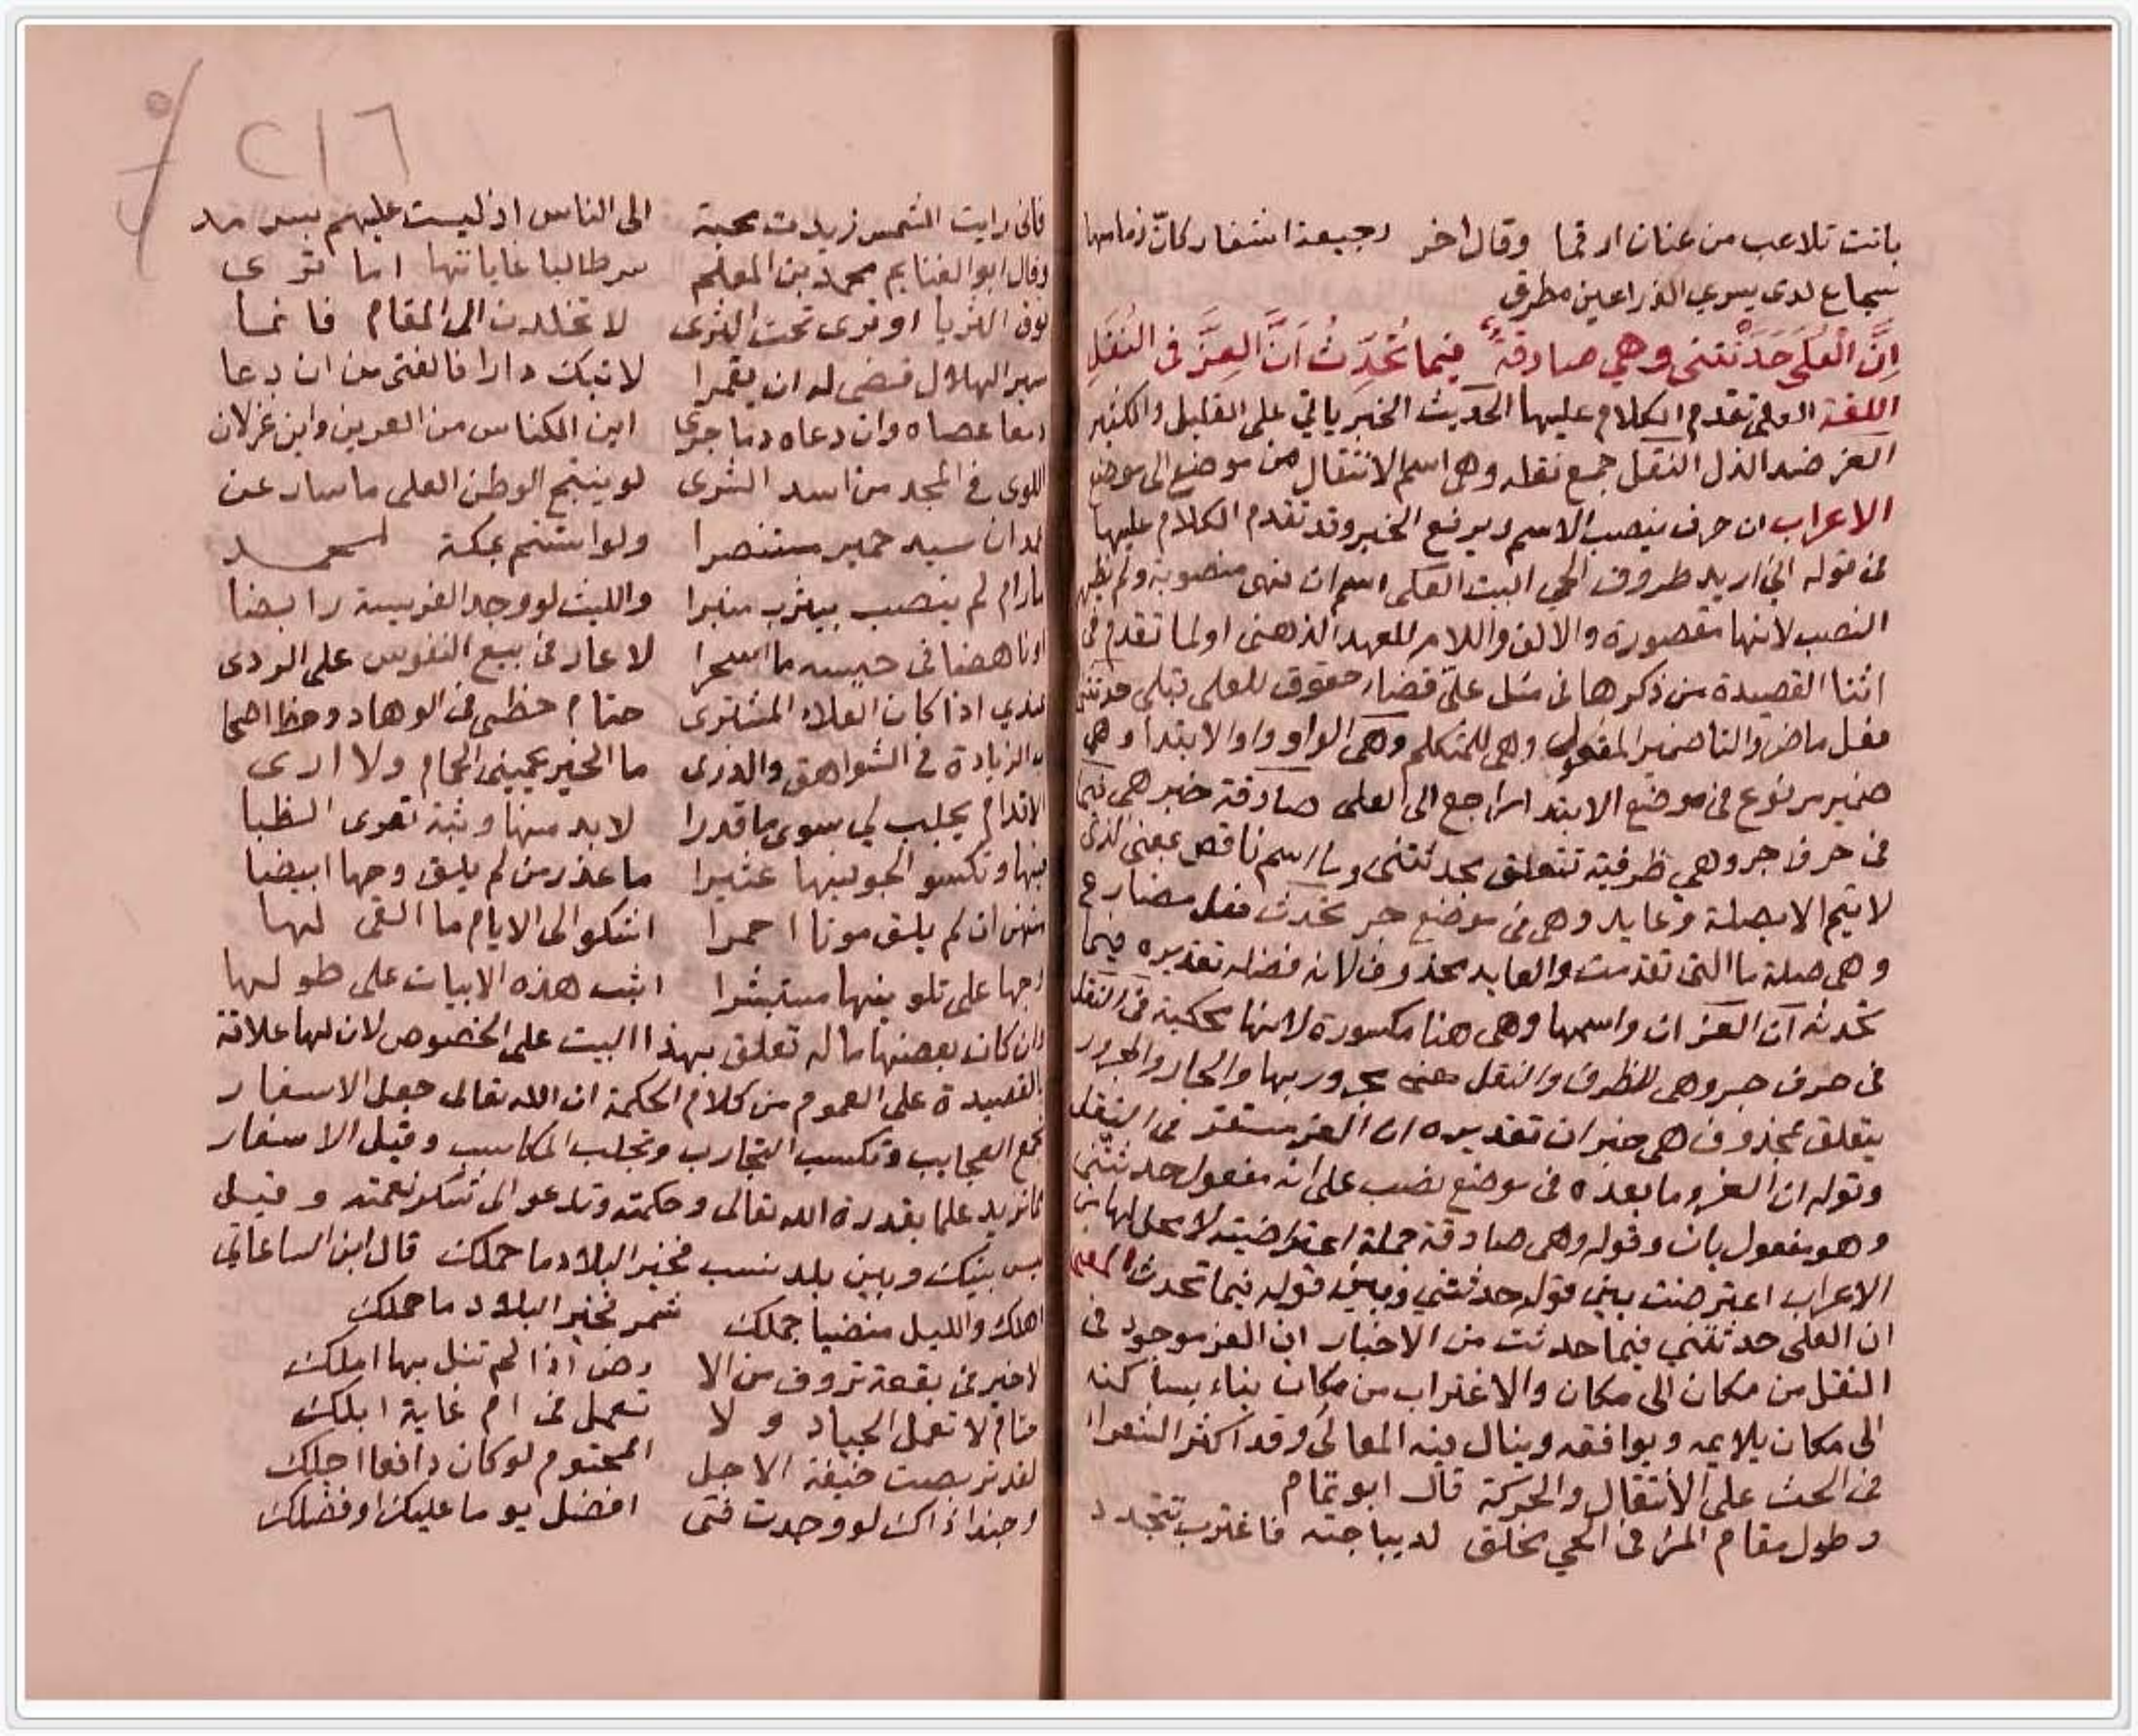 باتت تلاعب من عنان ارقما وقال اخر رجيعة اسفار كان زمامها
شجاع لدى يسري الذراعين مطرق
اِنَّ الْعُلَى حَدَّثَتْنى وهي صادقةٌ فيما تُحَدِّثُ اَنَّ العِزَّ فى النُّقَلِ
اللغة العلى تقدم الكلام عليها الحديث الخبر ياتي على القليل والكثير
العز ضد الذل النقل جمع نقله وهى اسم الانتقال من موضع الى موضع
الاعراب ان حرف ينصب الاسم ويرفع الخبر وقد تقدم الكلام عليها
فى قوله اني اريد طروق الحي البيت العلى اسم ان فهى منصوبة ولم يظهر
النصب لانها مقصورة والالف واللام للعهد الذهنى او لما تقدم فى
اثنا القصيدة من ذكرها فى مثل على قضاء حقوق للعلى قبلى حدثتنى
فعل ماض والتا ضمير المفعول وهى للمتكلم وهى الواو واو الابتدا وهي
ضمير مرفوع فى موضع الابتدا راجع الى العلى صادقة خبر هى فيما
فى حرف جر وهي ظرفية تتعلق بحدثتنى وما اسم ناقص بمعنى الذى
لا يتم الا بصلة وعايد وهى فى موضع جر تحدث فعل مضارع
وهى صلة ما التى تقدمت والعايد محذوف لانه فضله تقديره فيما
تحدثه ان العز ان واسمها وهى هنا مكسورة لانها محكية فى النقل
فى حرف جر وهى للظرف والنقل مجرور بها والجار والمجرور
يتعلق بمحذوف هى خبر ان تقديره ان العز مستقر فى النقل
وقوله ان العز وما بعده فى موضع نصب على انه مفعول حدثتنى
وهو مفعول ثان وقوله وهى صادقة جملة اعتراضية لا محل لها من
الاعراب اعترضت بين قوله حدثتني وبين قوله فيما تحدث المعنى
ان العلى حدثتني فيما حدثت من الاخبار ان العز موجود فى
النقل من مكان الى مكان والاغتراب من مكان بناء بساكنه
الى مكان يلايمه ويوافقه وينال فيه المعالى وقد اكثر الشعرا
فى الحث على الانتقال والحركة قال ابو تمام
وطول مقام المرء فى الحي مخلق لديباجته فاغترب تتجدد
٢١٦
فانى رايت الشمس زيدت محبة الى الناس اذ ليست عليهم بسرمد
وقال ابو الغنايم محمد بن المعلم سر طالبا غاياتها اما ترى
فوق الثريا او ترى تحت الثرى لا تخلدن الى المقام فانما
سير الهلال قضى له ان يقمرا لا تبك دارا فالفتى من ان دعا
دمعا عصاه وان دعاه دما جرى اين الكناس من العرين واين غزلان
اللوى فى المجد من اسد الشرى لو ينتج الوطن العلى ما سار عن
غمدان سيد حمير مستنصرا ولو استتم بمكة لمحمد
ما رام لم ينصب بيثرب منبرا والليث لو وجد الفريسة رابضا
او ناهضا فى خيسه ما اصحرا لا عار فى بيع النفوس على الردى
عندي اذا كان العلاء المشترى حتام حظى فى الوهاد وحظ اصحا
ب الزيادة فى الشواهق والذرى ما الخير يحمينى الحمام ولا ارى
الاقدام يجلب لي سوى ما قدرا لا بد منها وثبة تعرى الظبا
فيها وتكسو الجو فيها عثيرا ما عذر من لم يلق وجها ابيضا
منهن ان لم يلق موتا احمرا اشكو الى الايام ما القى لها
وجها على تلوينها مستبشرا اثبت هذه الابيات على طولها
وان كان بعضها ما له تعلق بهذا البيت على الخصوص لان لها علاقة
القصيدة على العموم من كلام الحكمة ان الله تعالى جعل الاسفار
تجمع العجايب وتكسب التجارب وتجلب المكاسب وقيل الاسفار
مما تزيد علما بقدرة الله تعالى وحكمته وتدعو الى شكر نعمته وقيل
ليس بينك وبين بلد نسب فخير البلاد ما حملك قال ابن الساعاتي
اهلك والليل منضيا جملك شمر فخير البلاد ما حملك
لا خير فى بقعة تروق من الا رض اذا لم تنل بها املك
حتام لا تعمل الجياد ولا تعمل فى ام غاية ابلك
لقد تربصت خيفة الاجل المحتوم لو كان دافعا اجلك
وحبذا ذاك لو وجدت فتى افضل يوما عليك او فضلك